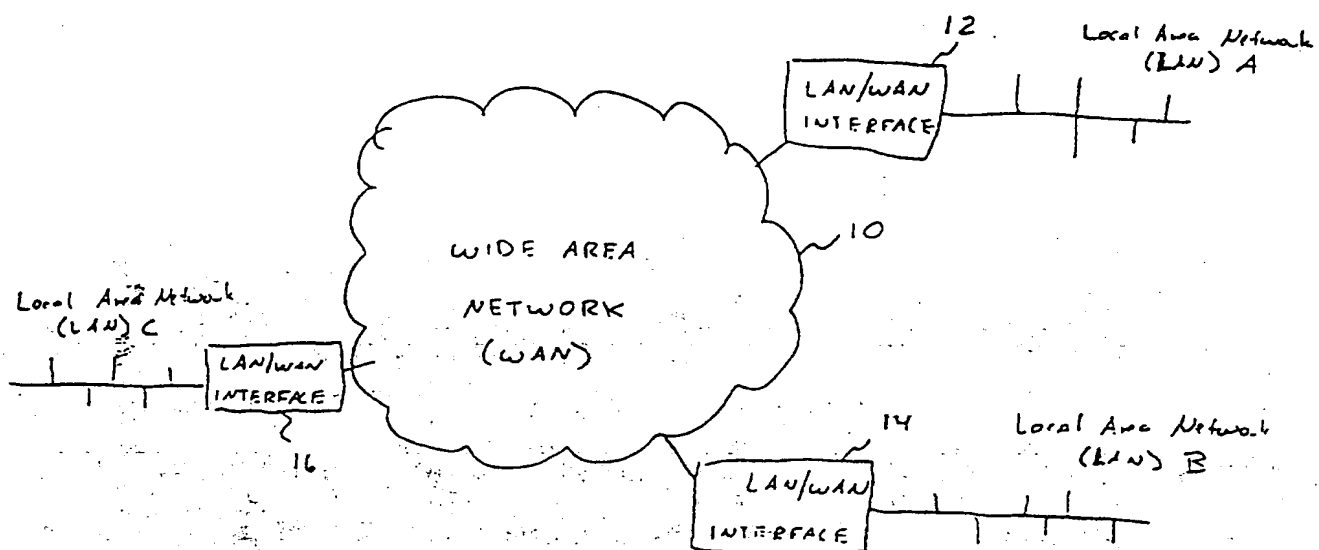 12
Local Area Network
(LAN) A
LAN/WAN
INTERFACE
10
WIDE AREA
NETWORK
(WAN)
Local Area Network
(LAN) C
LAN/WAN
INTERFACE
16
14
Local Area Network
(LAN) B
LAN/WAN
INTERFACE